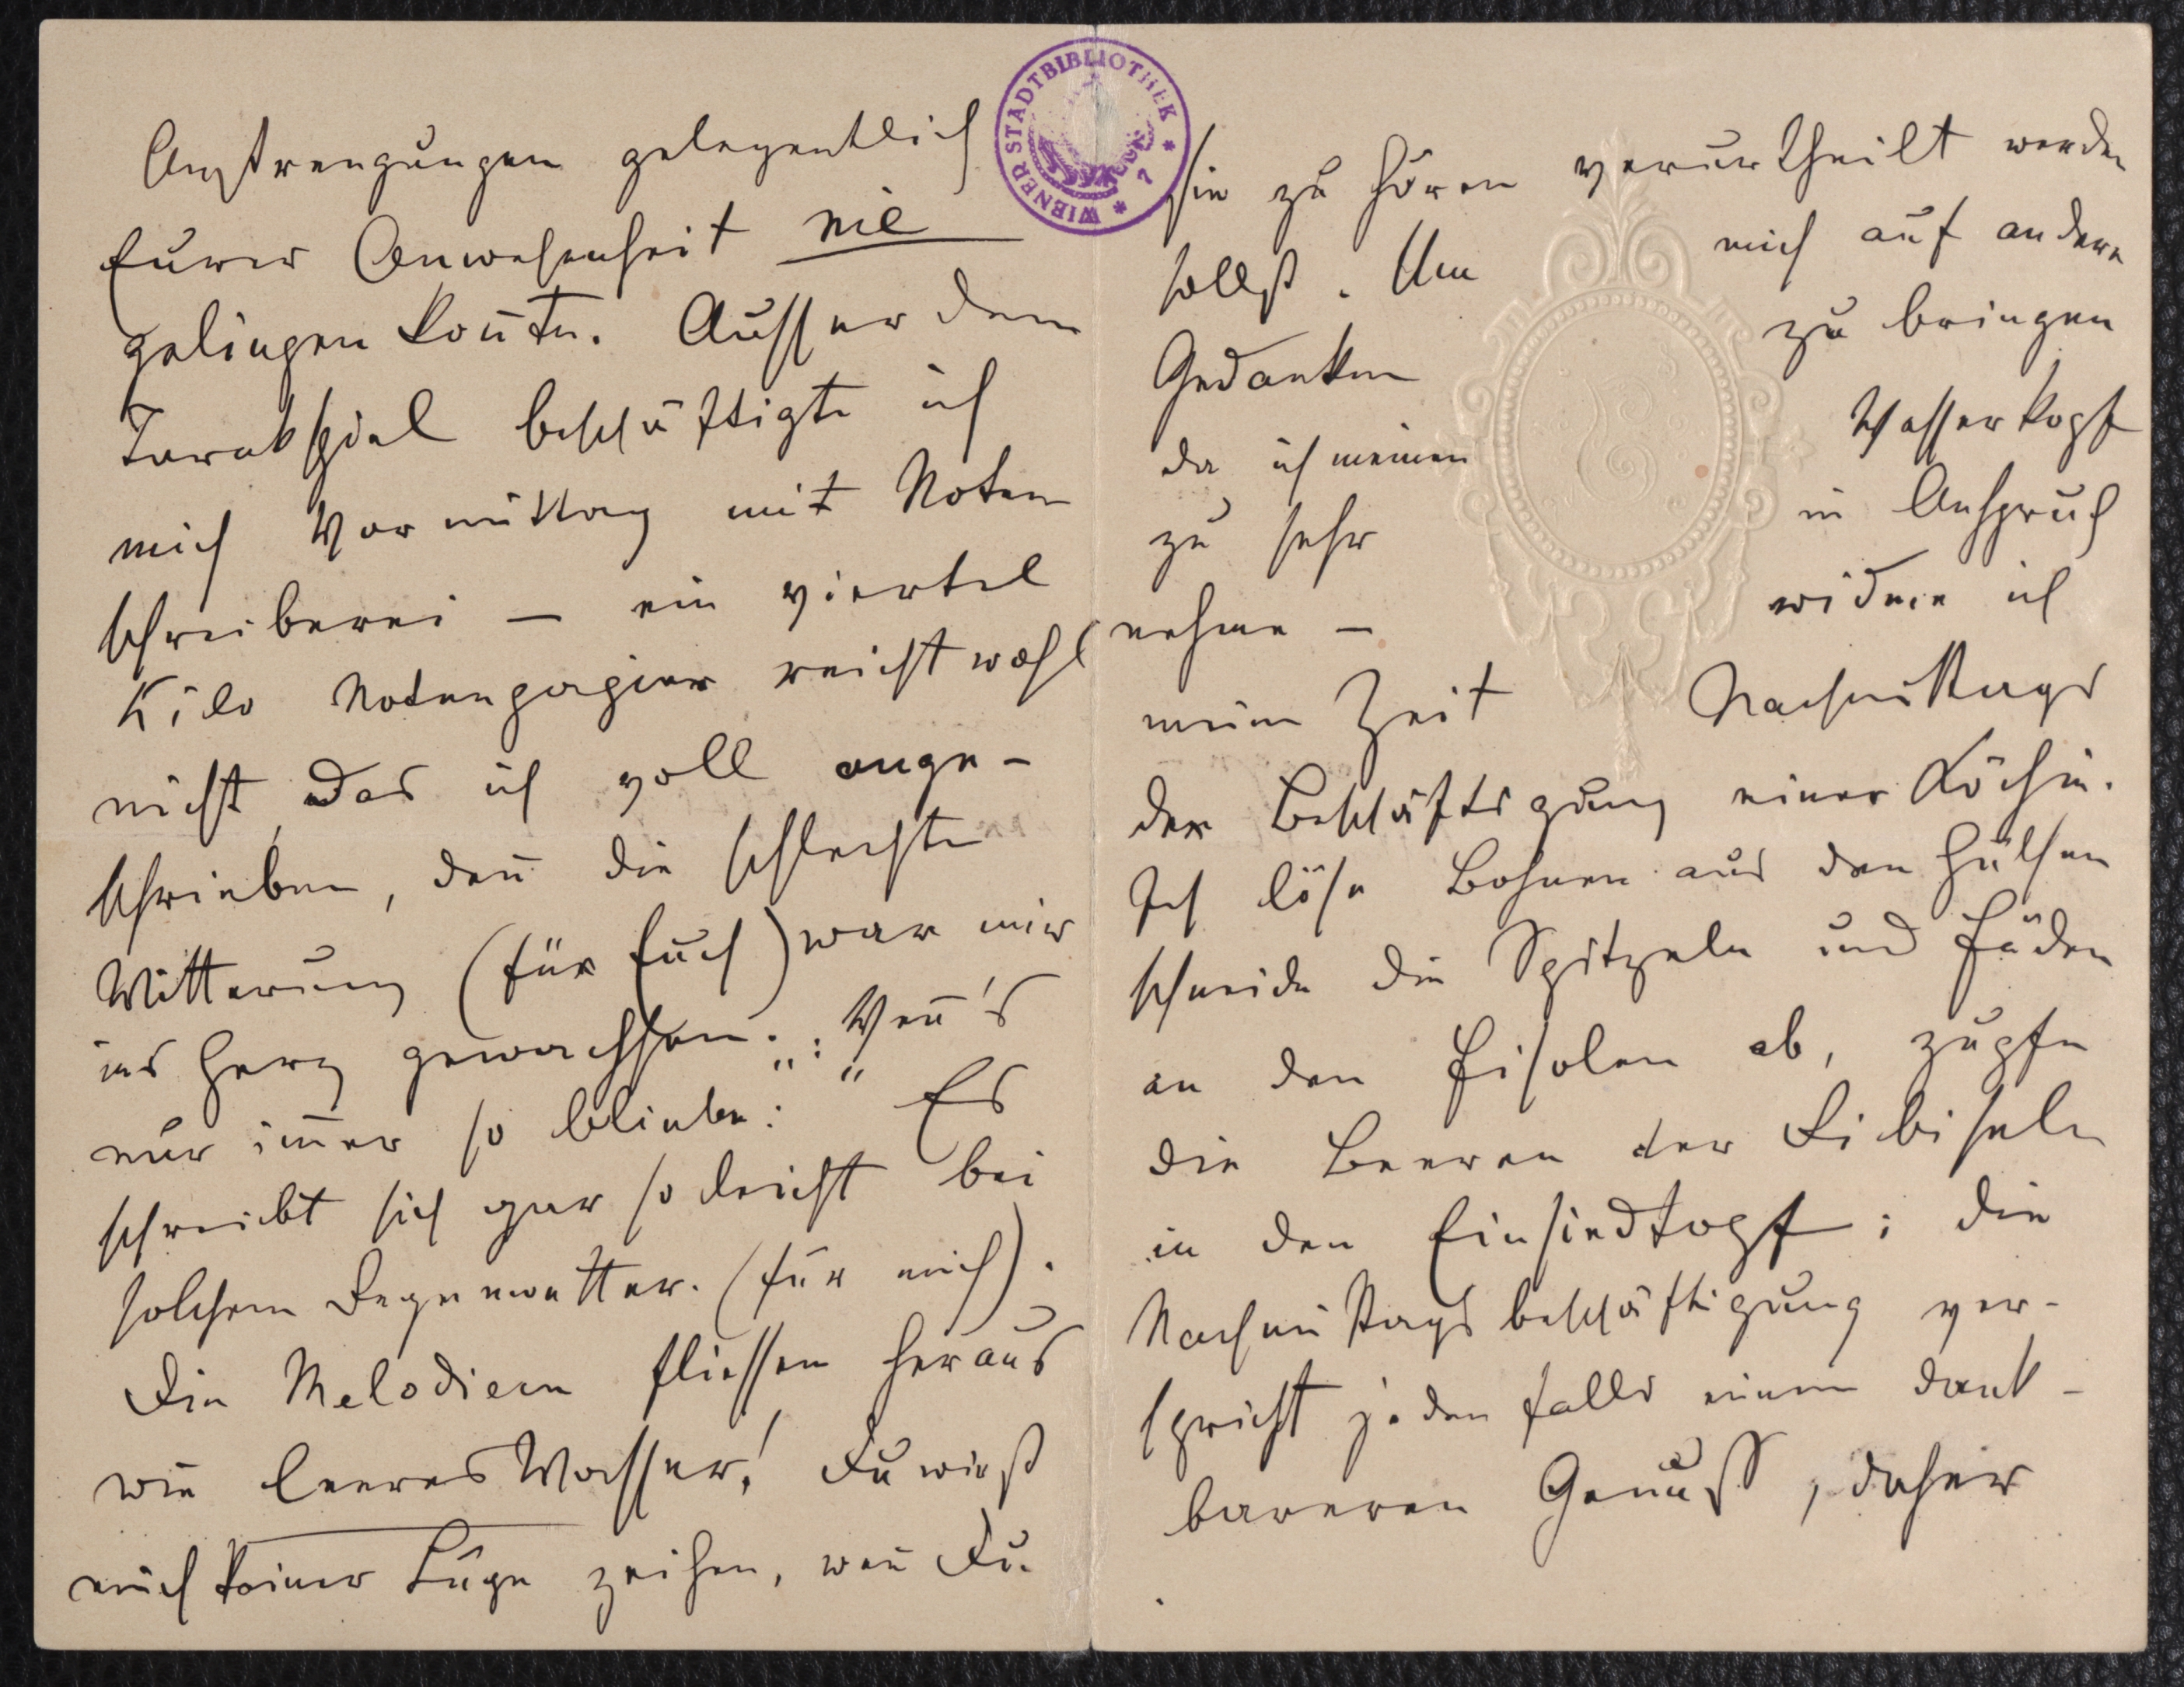 Anstrengungen gelegentlich
Eurer Anwesenheit nie
gelingen kon̄te. Ausser dem
Tarokspiel beschäftigte ich
mich Vormittag mit Noten
schreiberei – ein viertel
Kilo Notenpapier reicht wohl
nicht, das ich voll ange-
schrieben, den̄ die schlechte
Witterung (für Euch) war mir
ins Herz gewachsen: „Wen̄'s
nur im̄er so bliebe:“ Es
schreibt sich gar so leicht bei
solchem Regenwetter. (für mich).
Die Melodieen fliessen heraus
wie leeres Wasser! Du wirst
mich keiner Lüge zeihen, wen̄ Du
sie zu hören verurtheilt werden
sollst. Um mich auf andere
Gedanken zu bringen
da ich meinen Wasserkopf
zu sehr in Anspruch
nehme – widme ich
meine Zeit Nachmittags
der Beschäftigung einer Köchin.
Ich löse Bohnen aus den Hülsen
schneide die Spitzeln und Fäden
an den Fisolen ab, zupfe
die Beeren der Ribiseln
in den Einsiedtopf; die
Nachmittagsbeschäftigung ver-
spricht jedenfalls einen dank-
bareren Genuss, daher
WIENER STADTBIBLIOTHEK